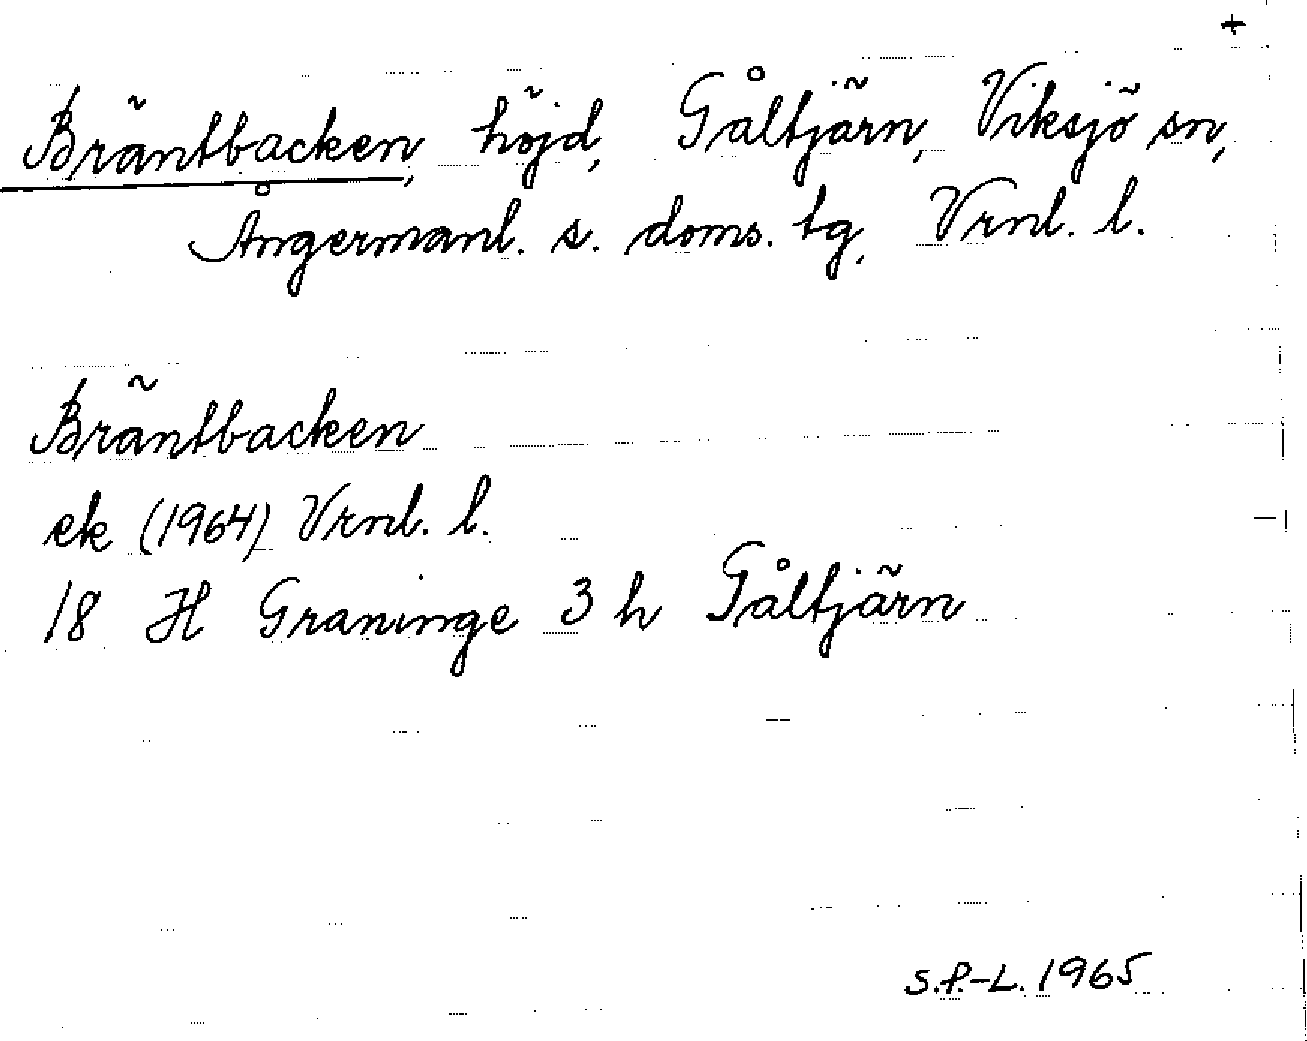 +
Bräntbacken, höjd, Gåltjärn, Viksjö sn,
Ångermanl. s. doms. tg, Vrnl. l.
Bräntbacken
ek (1964) Vrnl. l.
18 H Graninge 3 h Gåltjärn
S.P.-L. 1965